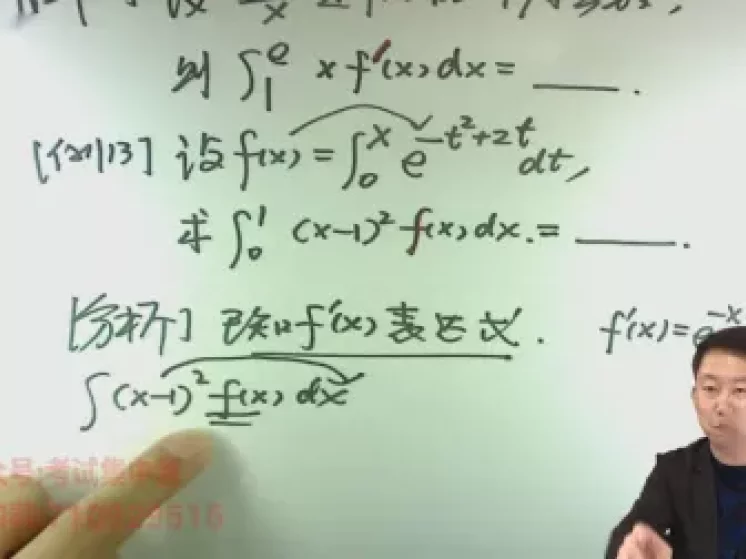 则 ∫₁ᵉ x f'(x) dx = ____ .
[例13] 设 f(x) = ∫₀ˣ e^{-t²+2t} dt,
求 ∫₀¹ (x-1)² f(x) dx. = ____ .
[分析] 已知 f'(x) 表达式 . f'(x) = e^{-x
∫ (x-1)² f(x) dx
号:考试集中营